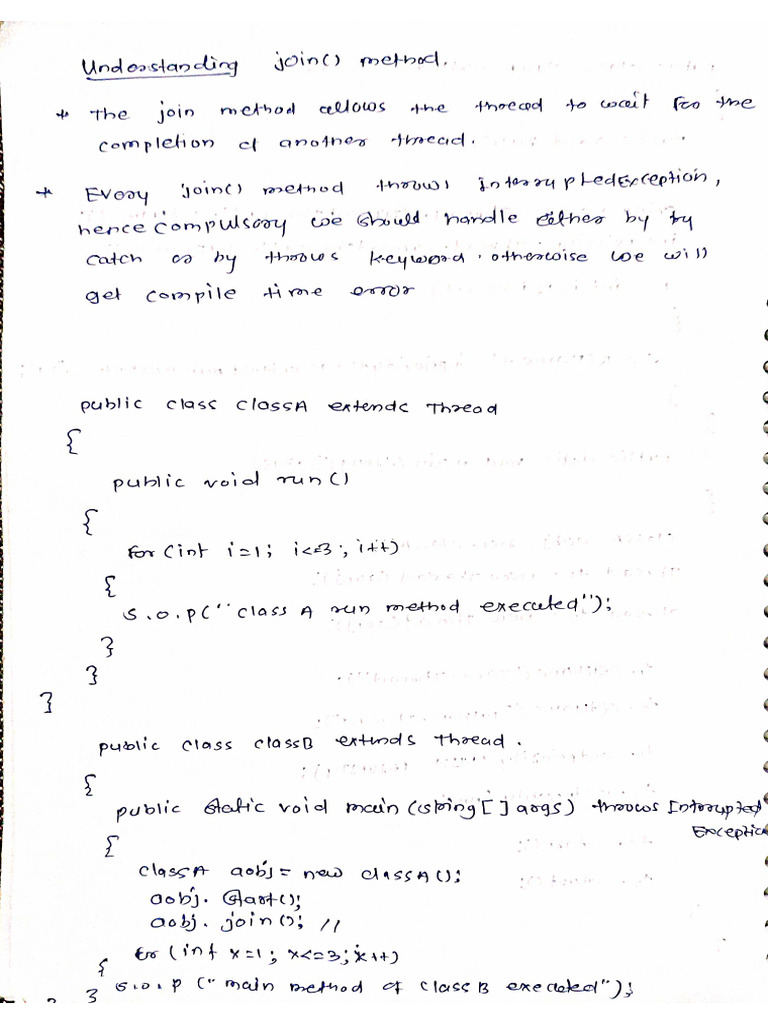 Understanding join() method.
* The join method allows the thread to wait for the
completion of another thread.
* Every join() method throws InterruptedException,
hence compulsory we should handle either by try
catch or by throws keyword. otherwise we will
get compile time error
public class classA extends Thread
{
public void run()
{
for(int i=1; i<=3; i++)
{
S.o.p("class A run method executed");
}
}
}
public class classB extends Thread.
{
public static void main(String[] args) throws Interrupted
Exceptio
{
classA aobj = new classA();
aobj. start();
aobj. join(); //
for (int x=1; x<=3; x++)
{
S.o.p ("main method of class B executed");
} }